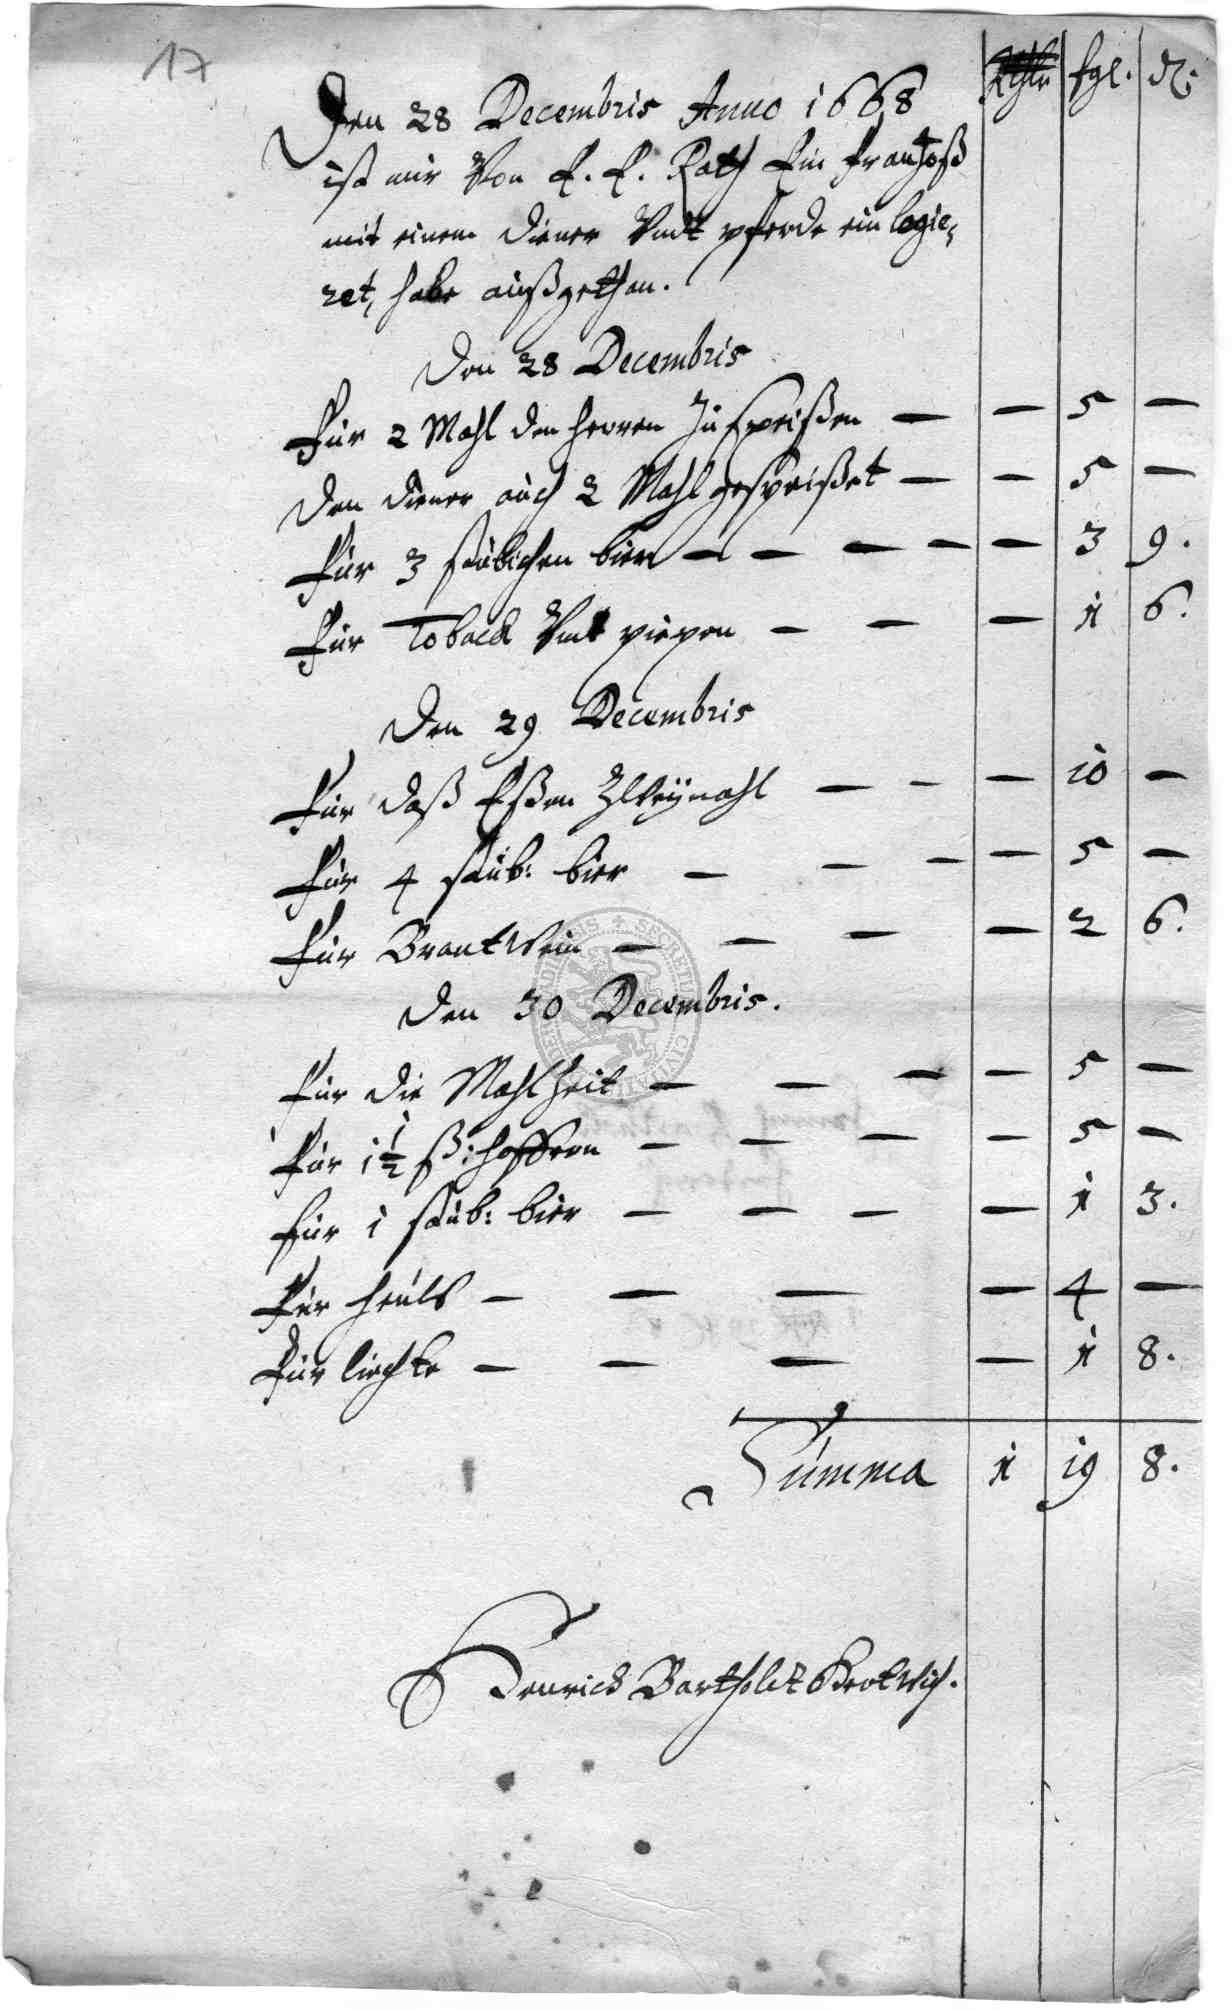 17
Rthlr fgl. d.
Den 28 Decembris Anno 1668
ist mir Von E. E. Rath Ein frantzoß
mit einem diener Vndt pferde ein logie=
ret, habe außgethan.
Den 28 Decembris
Für 2 Mahl den herren zu speißen — — 5 —
Den diener auch 2 Mahl gespeißet — — 5 —
Für 3 stübichen bier — — — — — 3 9.
Für Toback Vnd piepen — — — 1 6.
Den 29 Decembris
Für daß Eßen Zweymahl — — — 10 —
Für 4 stüb: bier — — — — 5 —
Für Brantwein — — — — 2 6.
Den 30 Decembris.
Für die Mahlzeit — — — — 5 —
Für 1 1/2 ß: haffern — — — — 5 —
für 1 stüb: bier — — — — 1 3.
Für — — — — 4 —
Für liechte — — — — 1 8.
Summa 1 19 8.
Henrick Bartholdt
SECRETI CIVITATIS